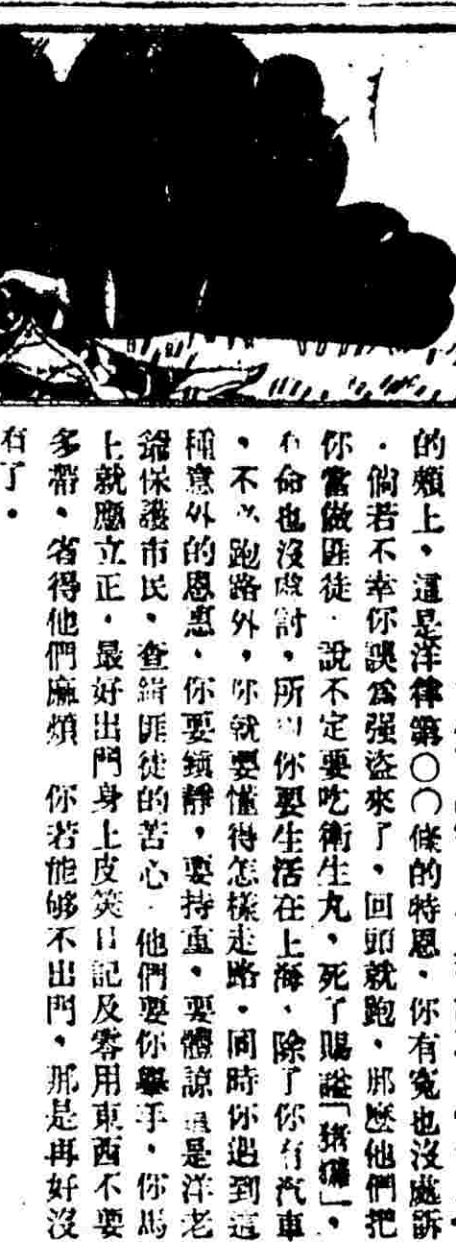 的頰上、這是洋律第〇〇條的特恩、你有寃也沒處訴
．倘若不幸你誤爲强盜來了，回頭就跑、那麽他們把
你當做匪徒．說不定要吃衛生丸，死了賜諡「豬玀」，
有命也沒處討，所以你要生活在上海、除了你有汽車
，不必跑路外，你就要懂得怎樣走路．同時你遇到這
種意外的恩惠、你要鎮靜，要持重、要體諒這是洋老
爺保護市民、查緝匪徒的苦心．他們要你舉手、你馬
上就應立正．最好出門身上皮筴日記及零用東西不要
多帶、省得他們麻煩　你若能够不出門，那是再好沒
有了．